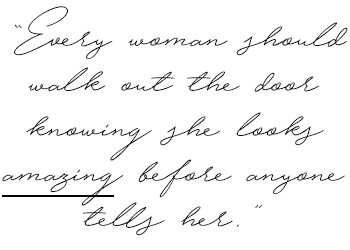 "Every woman should
walk out the door
knowing she looks
amazing before anyone
tells her."